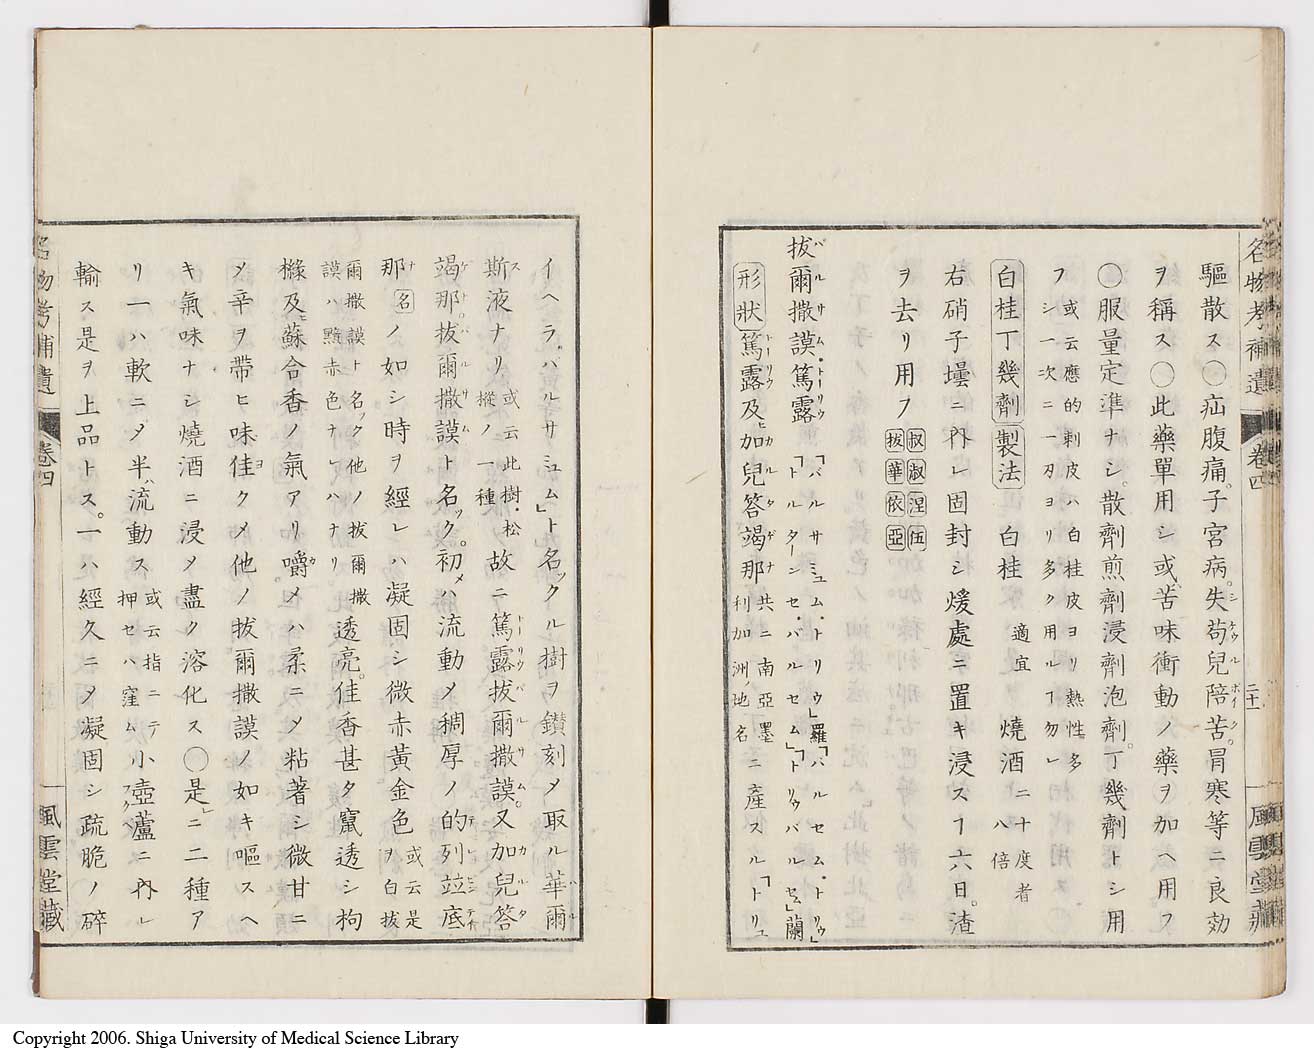 名物考補遺 卷四 二十一 風雲堂藏
驅散ス〇疝腹痛。子宮病。失苟兒陪苦。冒寒等ニ良効
ヲ稱ス〇此藥單用シ或苦味衝動ノ藥ヲ加ヘ用フ
〇服量定準ナシ。散劑煎劑浸劑泡劑。丁幾劑トシ用
フ或云應的剌皮ハ白桂皮ヨリ熱性多シ一次ニ一刃ヨリ多ク用ルヿ勿レ
白桂丁幾劑 製法 白桂 適宜 燒酒 二十度者 八倍
右硝子壜ニ內レ固封シ煖處ニ置キ浸スヿ六日。渣
ヲ去リ用フ 叔 淑 涅 伍 拔 華 依 亞
拔爾撒謨篤露 「バルサミュム・トリウ」羅「バルセム・トリウ」「トルターンセ・バルセム」「トリウバルセム」蘭
形狀 篤露及加兒答竭那 共ニ南亞墨利加洲ノ地名 ニ產スル「トリュ
イヘラ・バルサミュム」ト名ックル樹ヲ鑽刻メ取ル華爾
斯液ナリ 或云此樹・松樅ノ一種 故ニ篤露拔爾撒謨又加兒答
竭那拔爾撒謨ト名ック。初メハ流動メ稠厚ノ的列竝底
那 名 ノ如シ時ヲ經レハ凝固シ微赤黃金色 或云是ヲ白拔
爾撒謨ト名ック他ノ拔爾撒謨ハ黯赤色ナレハナリ 透亮。佳香甚タ竄透シ枸
櫞及蘇合香ノ氣アリ嚼メハ柔ニメ粘著シ微甘ニ
メ辛ヲ帶ヒ味佳クメ他ノ拔爾撒謨ノ如キ嘔スヘ
キ氣味ナシ燒酒ニ浸メ盡ク溶化ス〇是ニ二種ア
リ一ハ軟ニメ半流動ス 或云指ニテ押セハ窪ム 小壺蘆ニ內レ
輸ス是ヲ上品トス。一ハ經久ニメ凝固シ疏脆ノ碎
名物考補遺 卷四 風雲堂藏
Copyright 2006. Shiga University of Medical Science Library